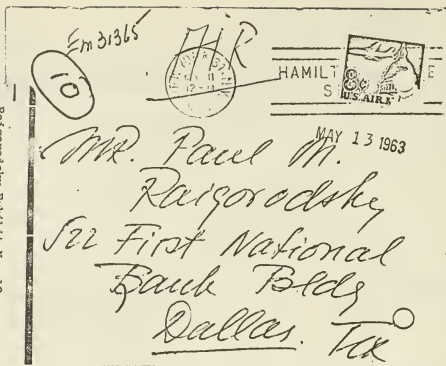 Em31365
AIR
10
HAMILT
S
U.S. AIR
MAY 13 1963
MR. Paul M.
Raigorodsky
522 First National
Bank Bldg
Dallas. Tex